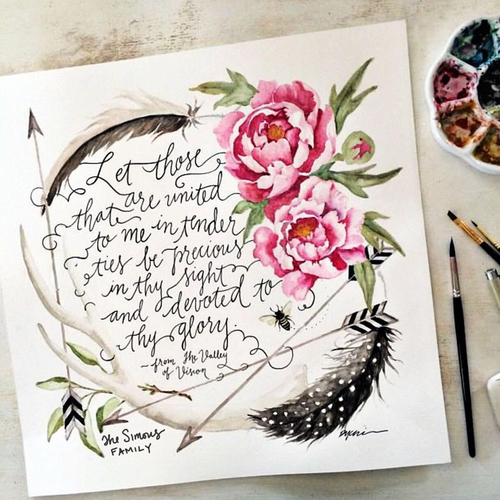 Let those
that are united
to me in tender
ties be precious
in thy sight
and devoted to
thy glory.
~from The Valley
of Vision
The Simons
FAMILY